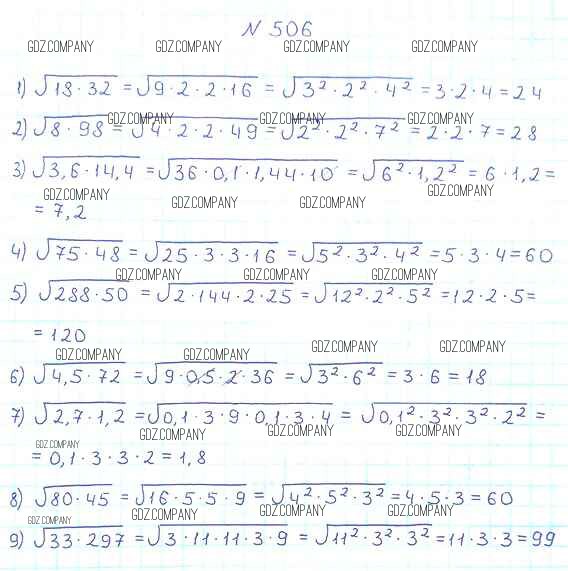 N 506
GDZ.COMPANY GDZ.COMPANY GDZ.COMPANY GDZ.COMPANY
1) √18·32 = √9·2·2·16 = √3²·2²·4² = 3·2·4 = 24
GDZ.COMPANY GDZ.COMPANY GDZ.COMPANY
2) √8·98 = √4·2·2·49 = √2²·2²·7² = 2·2·7 = 28
3) √3,6·14,4 = √36·0,1·1,44·10 = √6²·1,2² = 6·1,2 =
GDZ.COMPANY GDZ.COMPANY GDZ.COMPANY GDZ.COMPANY
= 7,2
4) √75·48 = √25·3·3·16 = √5²·3²·4² = 5·3·4 = 60
GDZ.COMPANY GDZ.COMPANY GDZ.COMPANY
5) √288·50 = √2·144·2·25 = √12²·2²·5² = 12·2·5 =
= 120
GDZ.COMPANY GDZ.COMPANY GDZ.COMPANY GDZ.COMPANY
6) √4,5·72 = √9·0,5·2·36 = √3²·6² = 3·6 = 18
7) √2,7·1,2 = √0,1·3·9·0,1·3·4 = √0,1²·3²·3²·2² =
GDZ.COMPANY GDZ.COMPANY GDZ.COMPANY GDZ.COMPANY
= 0,1·3·3·2 = 1,8
8) √80·45 = √16·5·5·9 = √4²·5²·3² = 4·5·3 = 60
GDZ.COMPANY GDZ.COMPANY GDZ.COMPANY GDZ.COMPANY
9) √33·297 = √3·11·11·3·9 = √11²·3²·3² = 11·3·3 = 99